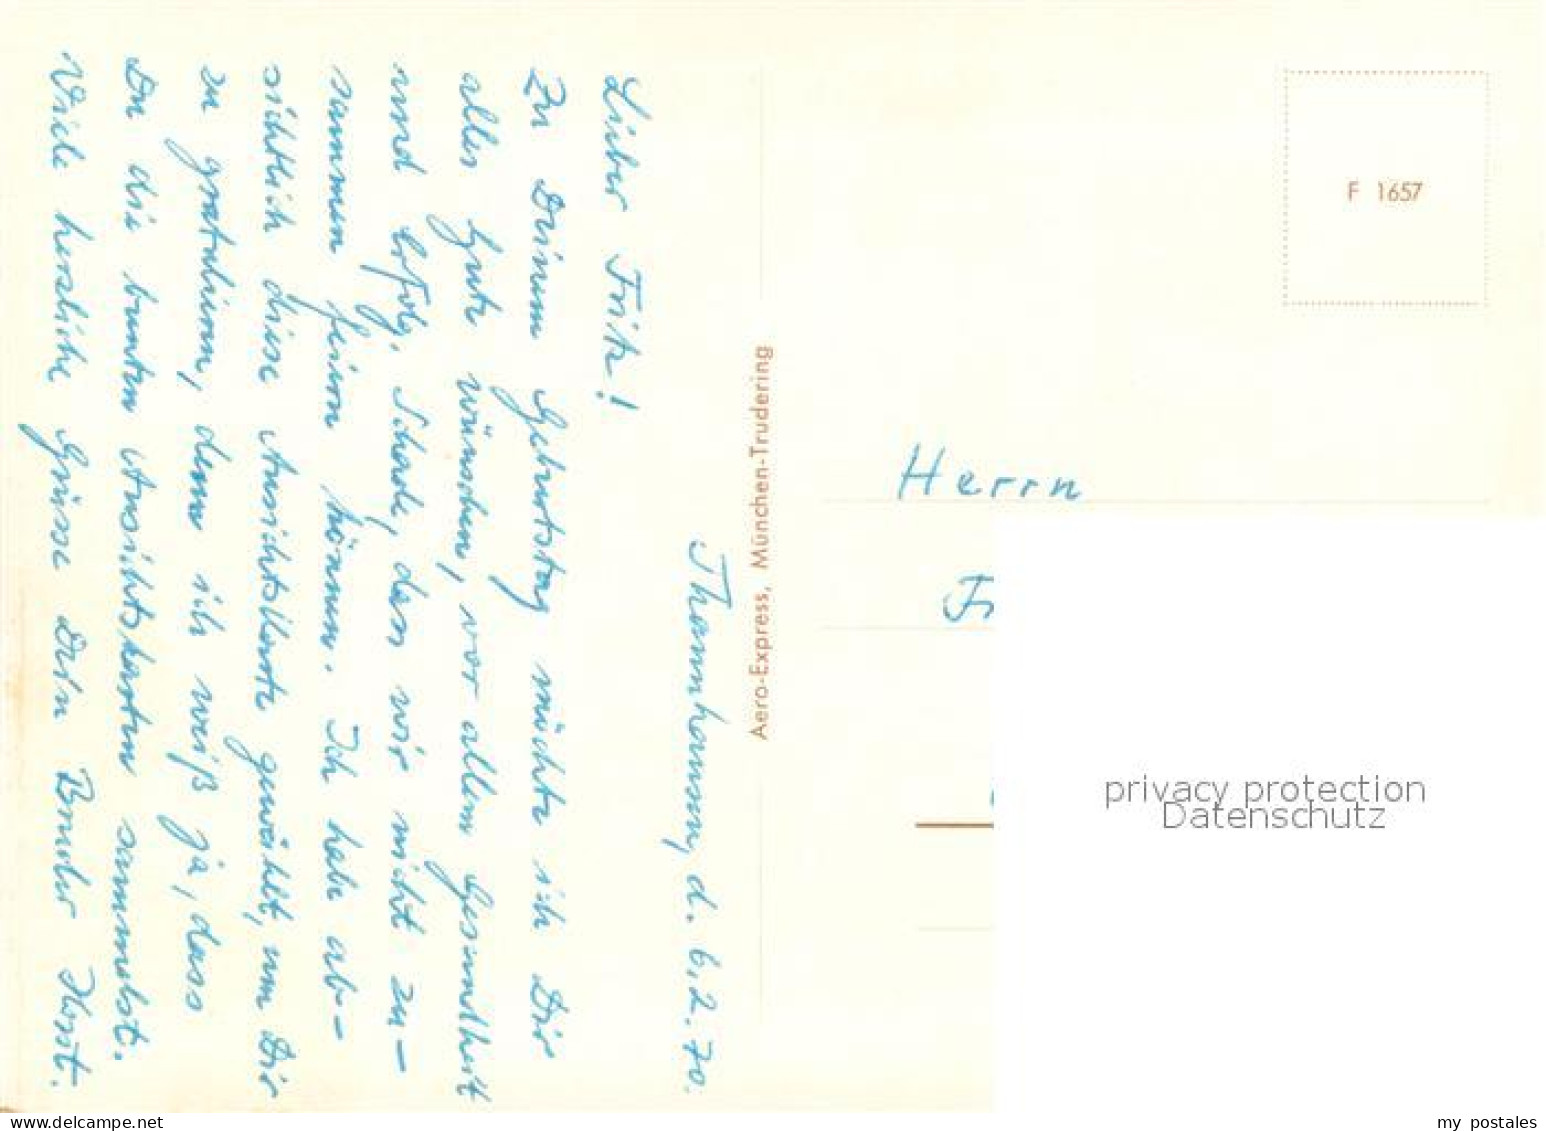 Thannhausen, d. 6.2.70.
Lieber Fritz!
Zu Deinem Geburtstag möchte ich Dir
alles Gute wünschen, vor allem Gesundheit
und Erfolg. Schade, dass wir nicht zu-
sammen feiern können. Ich habe ab-
sichtlich diese Ansichtskarte gewählt, um Dir
zu gratulieren, denn ich weiß ja, dass
Du die bunten Ansichtskarten sammelst.
Viele herzliche Grüsse Dein Bruder Horst.
Aero-Express, München-Trudering
F 1657
Herrn
Fr
privacy protection
Datenschutz
my postales